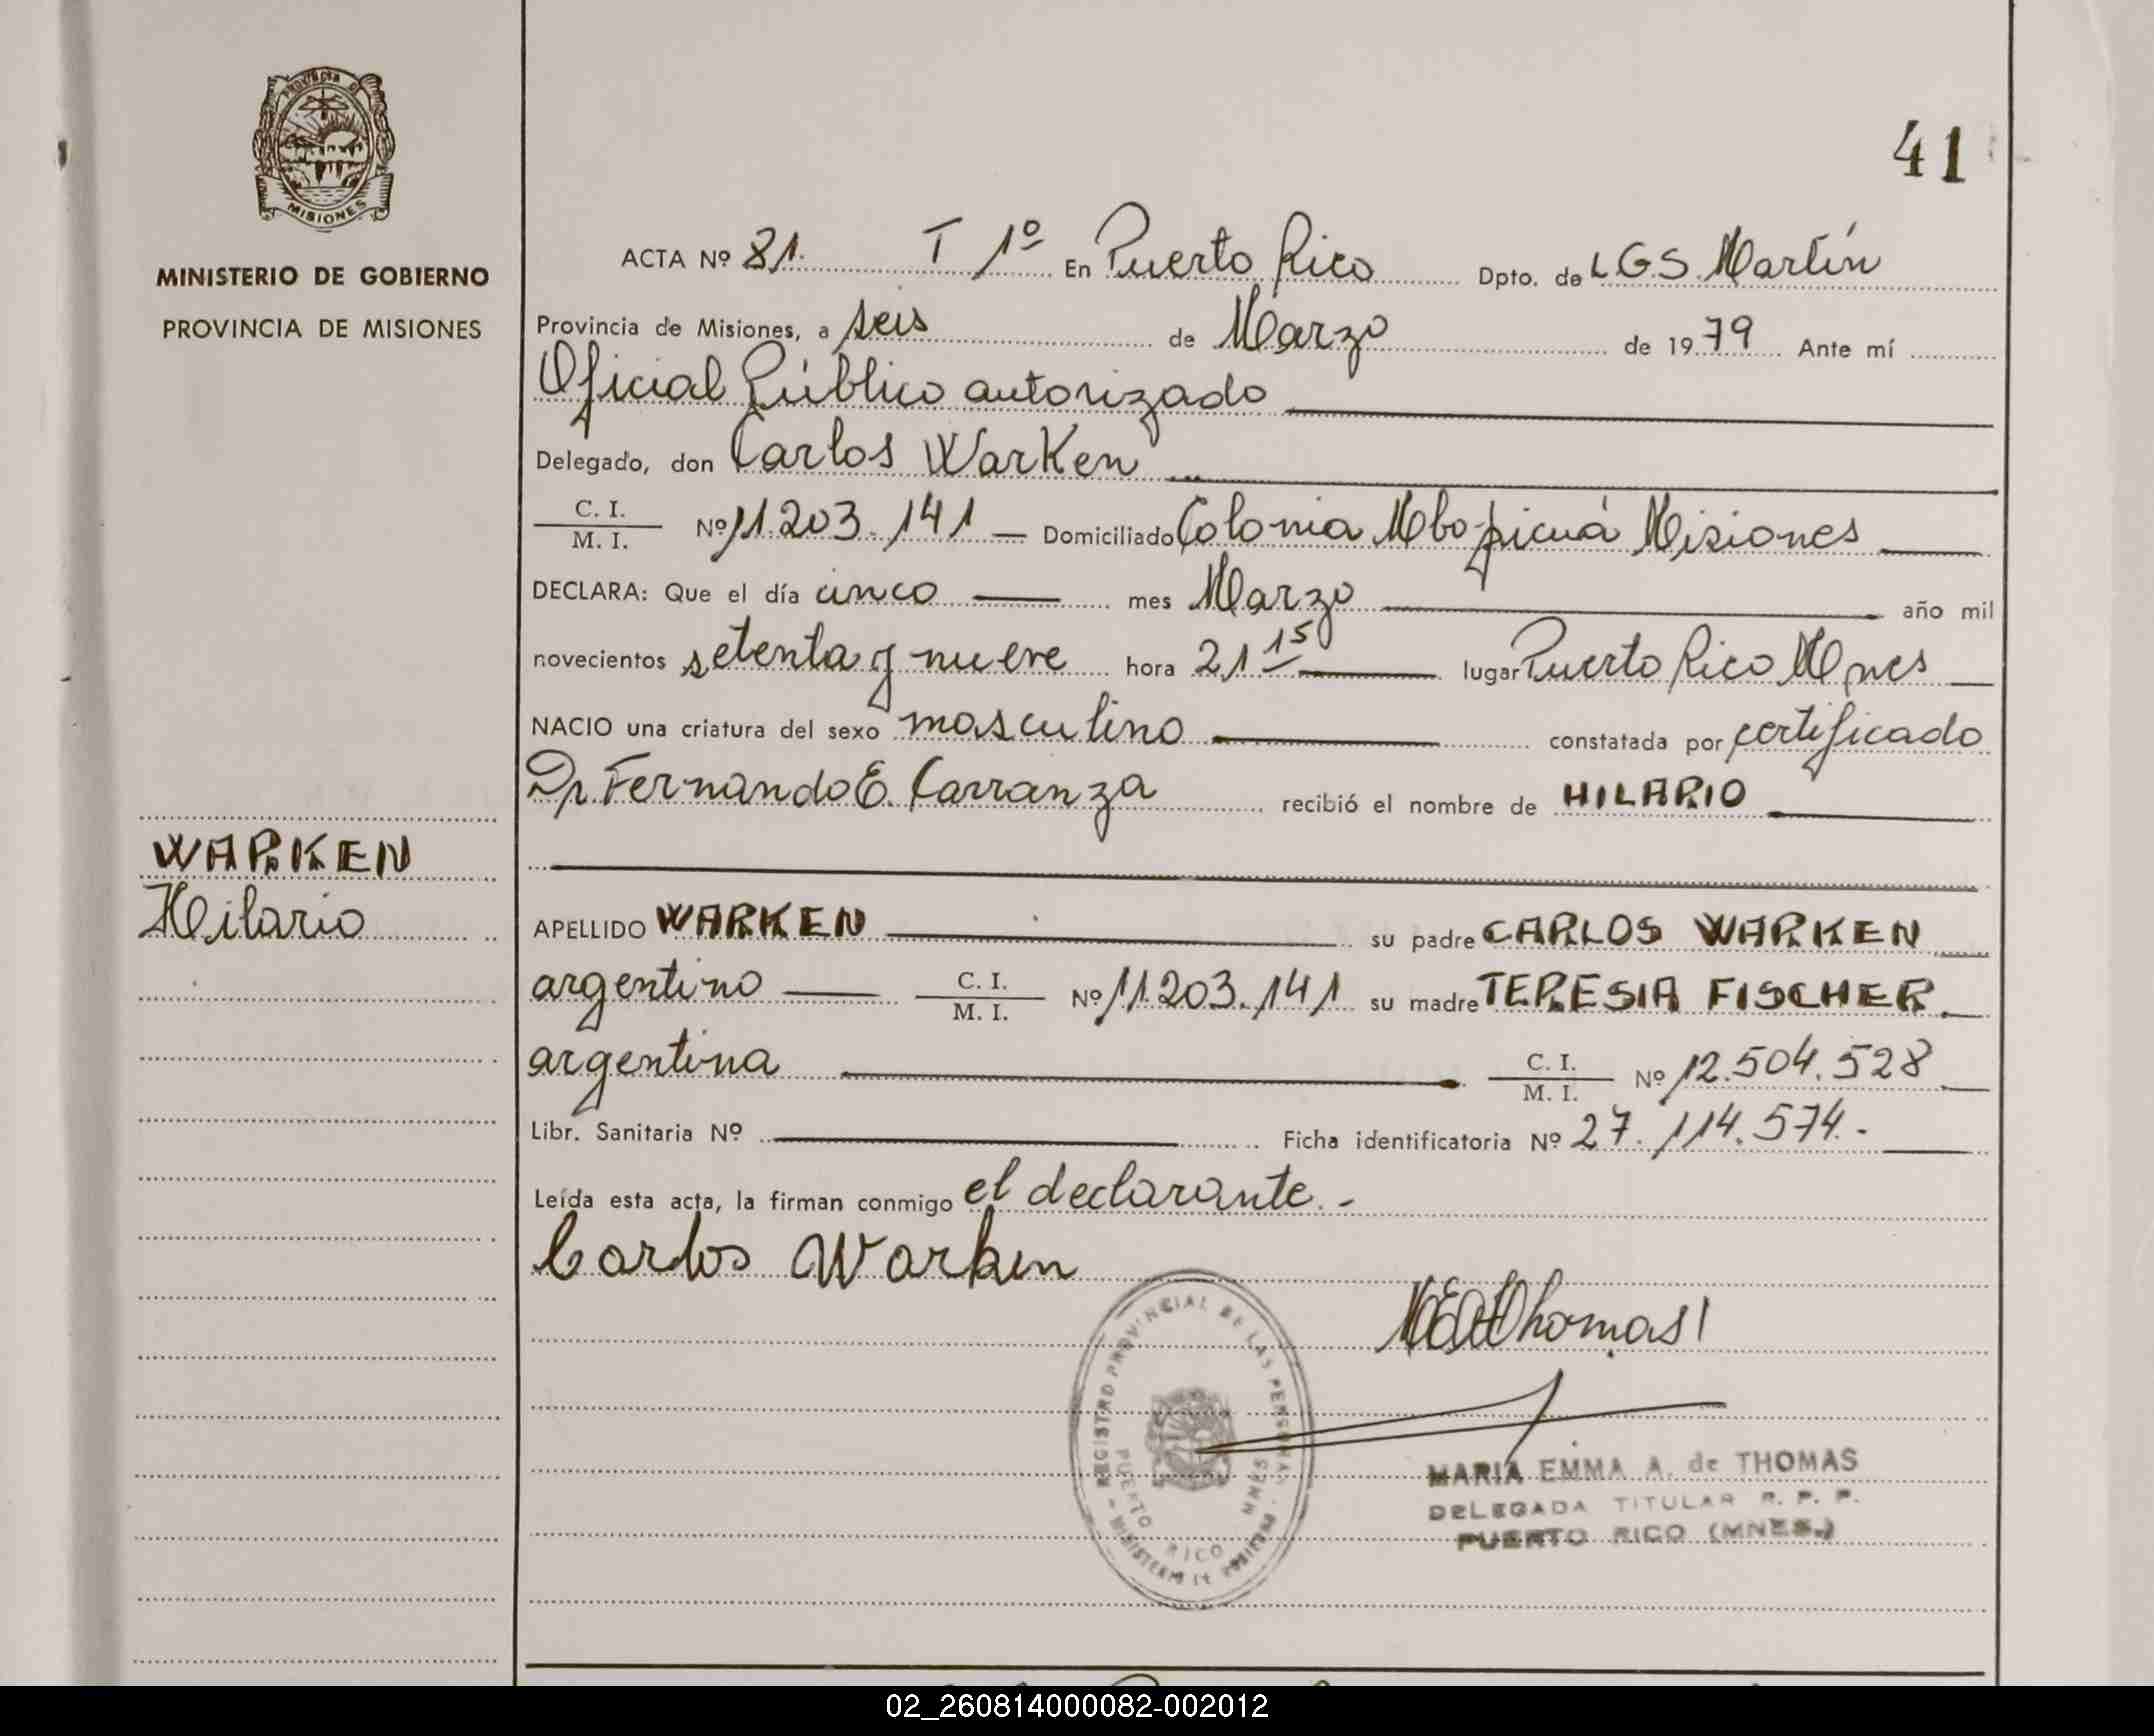 PROVINCIA DE
MISIONES
MINISTERIO DE GOBIERNO
PROVINCIA DE MISIONES
WARKEN
Hilario
41
ACTA Nº 81. T 1º En Puerto Rico Dpto. de L.G.S. Martín
Provincia de Misiones, a seis de Marzo de 1979 Ante mí
Oficial Público autorizado
Delegado, don Carlos Warken
C. I. / M. I. Nº 11.203.141 — Domiciliado Colonia Mbopicuá Misiones
DECLARA: Que el día cinco mes Marzo año mil
novecientos setenta y nueve hora 21 15 lugar Puerto Rico Mnes
NACIO una criatura del sexo masculino constatada por certificado
Dr. Fernando E. Carranza recibió el nombre de HILARIO
APELLIDO WARKEN su padre CARLOS WARKEN
argentino — C. I. / M. I. Nº 11.203.141 su madre TERESIA FISCHER
argentina C. I. / M. I. Nº 12.504.528
Libr. Sanitaria Nº Ficha identificatoria Nº 27.114.574.-
Leída esta acta, la firman conmigo el declarante.-
Carlos Warken
Thomas
REGISTRO PROVINCIAL DE LAS PERSONAS
PUERTO RICO MNES
MINISTERIO DE GOBIERNO
MARIA EMMA A. de THOMAS
DELEGADA TITULAR R. P. P.
PUERTO RICO (MNES.)
02_260814000082-002012